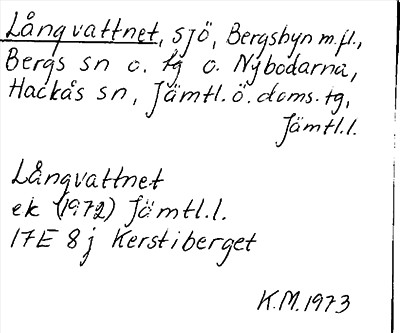 Långvattnet, sjö, Bergsbyn m.fl.,
Bergs sn o. tg o. Nybodarna,
Hackås sn, Jämtl.ö.doms.tg,
Jämtl.l.
Långvattnet
ek (1972) Jämtl.l.
17E 8j Kerstiberget
K.M.1973